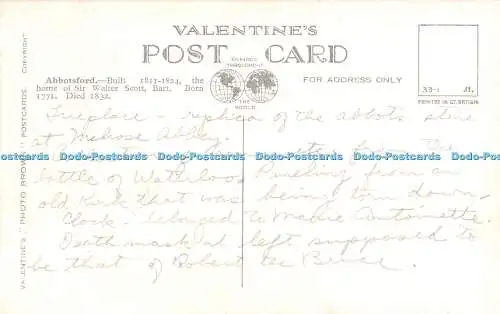 VALENTINE'S
POST CARD
FAMOUS THROUGHOUT
THE WORLD
Abbotsford.—Built 1811-1824, the
home of Sir Walter Scott, Bart. Born
1771. Died 1832.
FOR ADDRESS ONLY
33-1 Jt.
PRINTED IN GT. BRITAIN
VALENTINE'S "PHOTO BROWN" POSTCARDS. COPYRIGHT
Fireplace - replica of the abbots
at Melrose Abbey.
from the
battle of Waterloo Panelling from an
old kirk that was being torn down-
Clock - belonged to Marie Antoinette.
Death mask at left supposed to
be that of Robert the Bruce.
Dodo-Postcards Dodo-Postcards Dodo-Postcards Dodo-Postcards Dodo-Postcards Dodo-Postcards